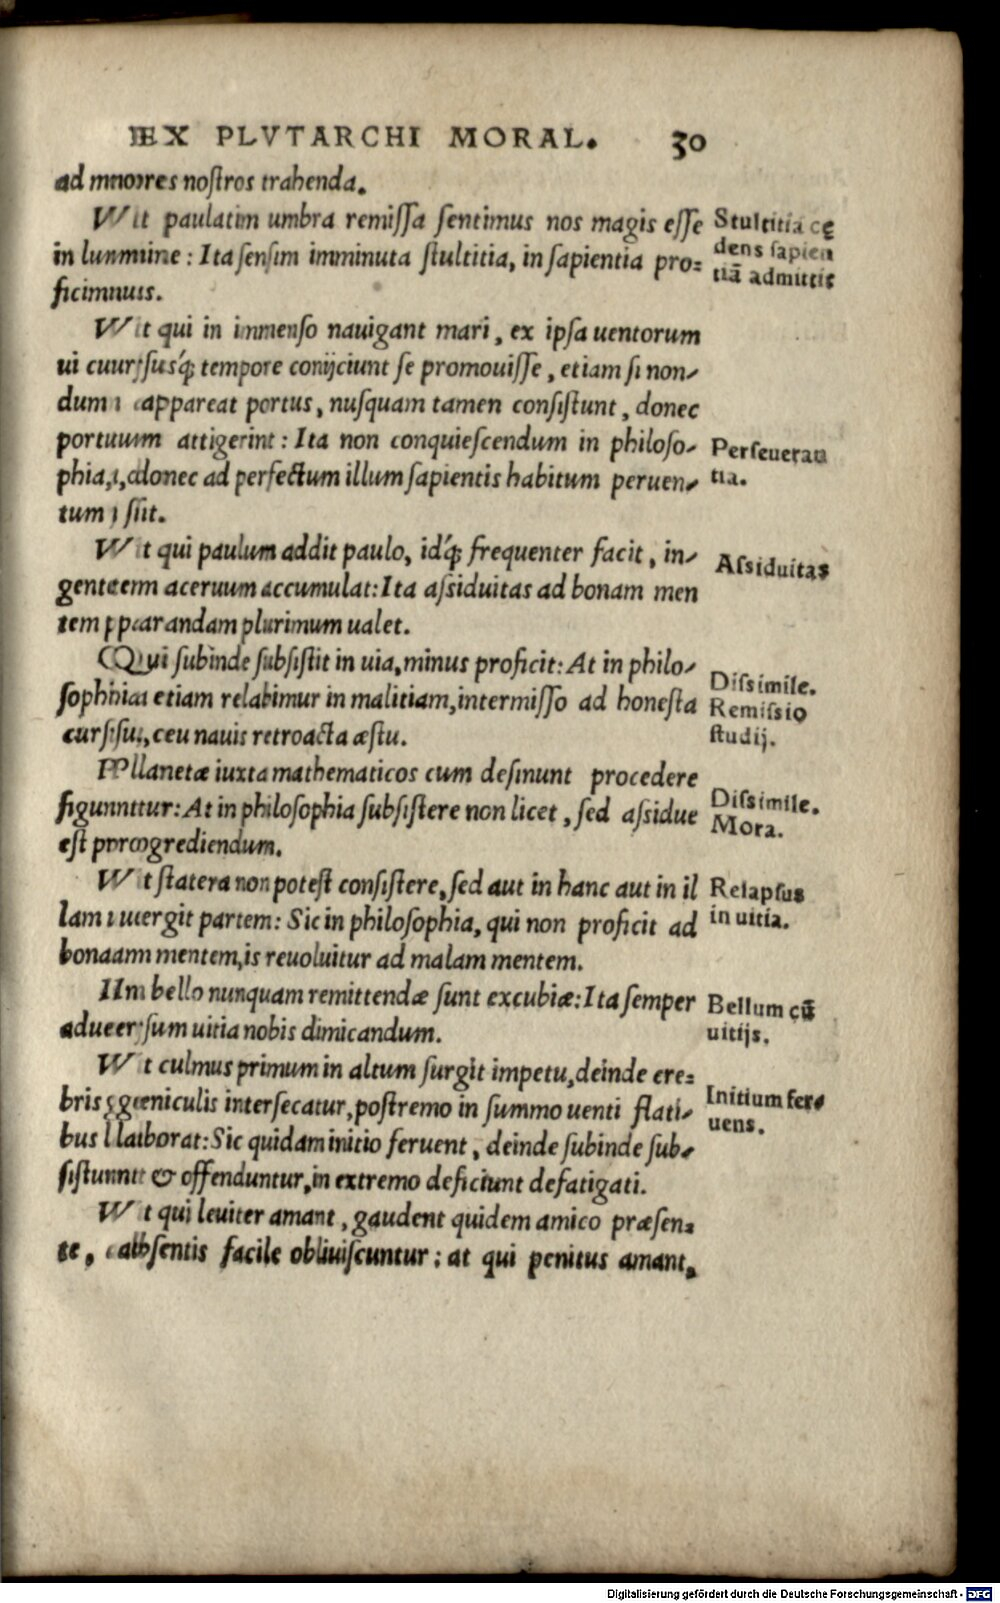 EX PLVTARCHI MORAL. 30
ad mores noſtros trahenda.
Vt paulatim umbra remiſſa ſentimus nos magis eſſe
in lumine: Ita ſenſim imminuta ſtultitia, in ſapientia pro=
ficimus.
Stultitia cę
dens ſapien
tiā admittit
Vt qui in immenſo nauigant mari, ex ipſa uentorum
ui curſusq́; tempore conijciunt ſe promouiſſe, etiam ſi non-
dum appareat portus, nuſquam tamen conſiſtunt, donec
portum attigerint: Ita non conquieſcendum in philoſo-
phia, donec ad perfectum illum ſapientis habitum peruen-
tum ſit.
Perſeueran
tia.
Vt qui paulum addit paulo, idq́; frequenter facit, in-
gentem aceruum accumulat: Ita aſsiduitas ad bonam men
tem parandam plurimum ualet.
Aſsiduitas
Qui ſubinde ſubſiſtit in uia, minus proficit: At in philo-
ſophia etiam relabimur in malitiam, intermiſſo ad honeſta
curſu, ceu nauis retroacta æſtu.
Diſsimile.
Remiſsio
ſtudij.
Planetæ iuxta mathematicos cum deſinunt procedere
figuntur: At in philoſophia ſubſiſtere non licet, ſed aſsidue
eſt progrediendum.
Diſsimile.
Mora.
Vt ſtatera non poteſt conſiſtere, ſed aut in hanc aut in il
lam uergit partem: Sic in philoſophia, qui non proficit ad
bonam mentem, is reuoluitur ad malam mentem.
Relapſus
in uitia.
In bello nunquam remittendæ ſunt excubiæ: Ita ſemper
aduerſum uitia nobis dimicandum.
Bellum cū
uitijs.
Vt culmus primum in altum ſurgit impetu, deinde cre=
bris geniculis interſecatur, poſtremo in ſummo uenti flati-
bus laborat: Sic quidam initio feruent, deinde ſubinde ſub-
ſiſtunt & offenduntur, in extremo deficiunt defatigati.
Initium fer-
uens.
Vt qui leuiter amant, gaudent quidem amico præſen=
te, abſentis facile obliuiſcuntur: at qui penitus amant,
Digitalisierung gefördert durch die Deutsche Forschungsgemeinschaft - DFG